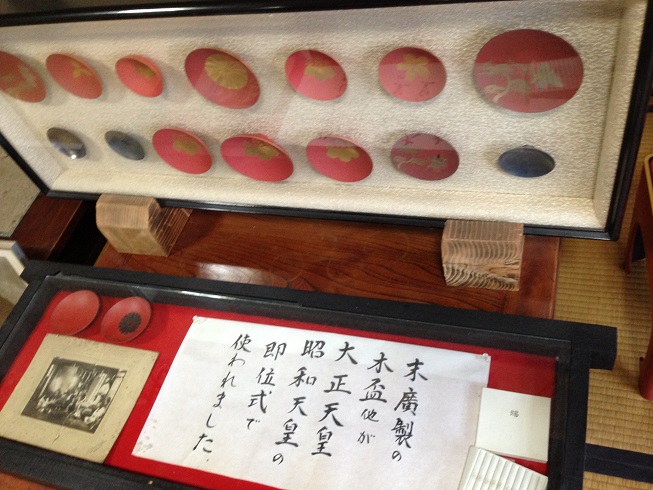 末廣製の
木盃他が
大正天皇
昭和天皇の
即位式で
使われました.